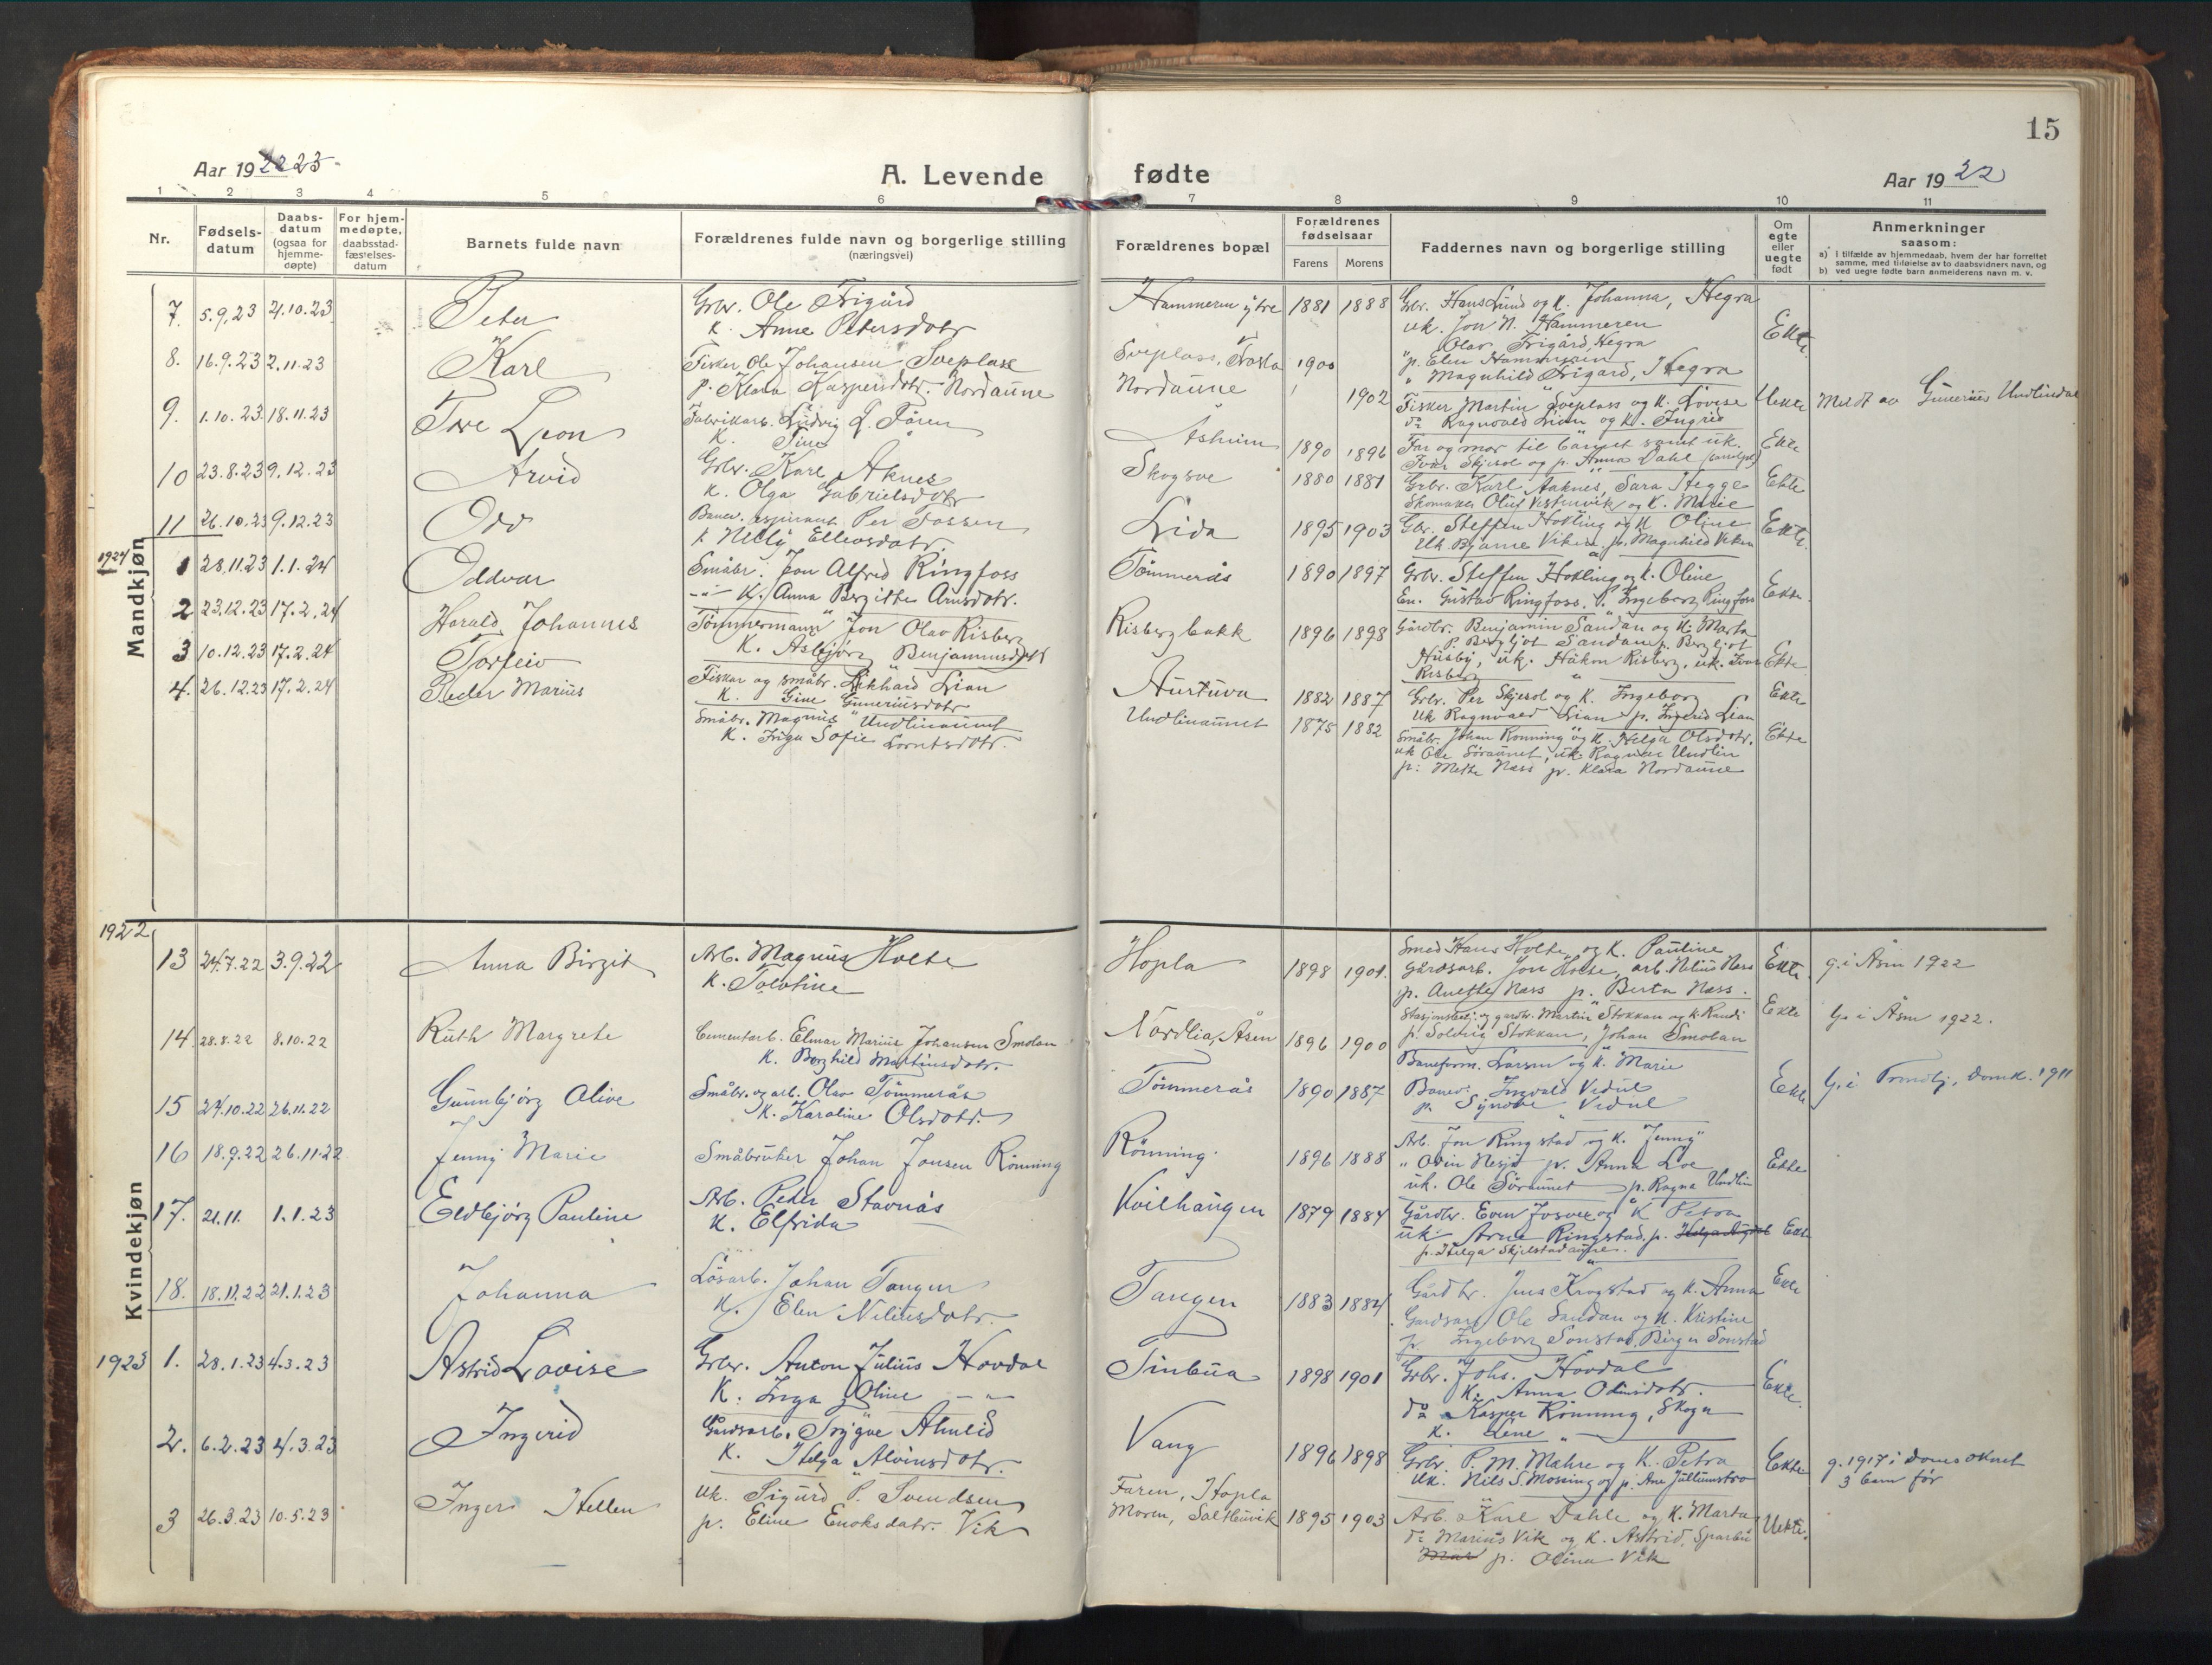 15
Aar 1922 23
A. Levende fødte
Aar 1922
1 2 3 4 5 6 7 8 9 10 11
Nr.
Fødsels-datum
Daabs-datum (ogsaa for hjemme-døpte)
For hjem-medøpte, daabsstad-fæstelses-datum
Barnets fulde navn
Forældrenes fulde navn og borgerlige stilling (næringsvei)
Forældrenes bopæl
Forældrenes fødselsaar
Farens Morens
Faddernes navn og borgerlige stilling
Om egte eller uegte født
Anmerkninger saasom:
a) i tilfælde av hjemmedaab, hvem der har forrettet samme, med tilføielse av to daabsvidners navn, og
b) ved uegte fødte barn anmelderens navn m. v.
Mandkjøn
7. 5.9.23 21.10.23 Peter
Grbr. Ole Frigård
K. Anne Petersdotr
Hammeren ytre 1881 1888
Grbr. Hans Lund og K. Johanna, Hegra
uk. Jon N. Hammeren
Olav Frigård, Hegra
p. Elen Hammeren
" Magnhild Frigård, Hegra
Ekte
8. 16.9.23 2.11.23 Karl
Fisker Ole Johansen Sveplass
p. Klara Kaspersdotr. Nordaune
Sveplass, Frosta 1900
Nordaune 1902
Fisker Martin Sveplass og K. Lovise
do Ragnvald Lian og K. Ingrid
Uekte
Meldt av Gunerius Undlindal
9. 1.10.23 18.11.23 Tore Leon
Fabrikarb. Ludvig L. Føren
K. Tine
Åsheim 1890 1896
Far og mor til barnet samt uk.
Ivar Skjesol og p. Anna Dahl
Ekte
10 23.8.23 9.12.23 Arvid
Grbr. Karl Åknes
K. Olga Gabrielsdotr
Skogsve 1880 1881
Grbr. Karl Aaknes, Sara Hegge
Skomaker Oluf Vestervik og K. Marie
Ekte
11 26.10.23 9.12.23 Odd
Banev. aspirant Per Fossen
K Nelly Ellevsdotr.
Lida 1895 1903
Gbr. Steffen Hokling og K Oline
Uk. Bjarne Viken, p. Magnhild Viken
Ekte
1924
1 28.11.23 1.1.24 Oddvar
Småbr. Jon Alfred Ringfoss
-"- K. Anna Bergitte Arnsdotr.
Tømmerås 1890 1897
Grbr. Steffen Hokling og K. Oline
En. Gustav Ringfoss. P. Ingeborg Ringfoss
Ekte
2 23.12.23 17.2.24 Harald Johannes
Tømmermann Jon Olav Risberg
K. Asbjørg Benjaminsdotr
Risbergbakk 1896 1898
Gårdbr. Benjamin Sandan og K. Marta
P. Bergljot Sandan, p. Bergljot
Husby, uk. Håkon Risberg, uk. Ivar
Risberg
Ekte
3 10.12.23 17.2.24 Torleiv
Fisker og småbr. Rikhard Lian
K. Gine Guneriusdotr
Austuva 1882 1887
Grbr. Per Skjesol og K. Ingeborg
Uk Ragnvald Lian p. Ingerid Lian
Ekte
4. 26.12.23 17.2.24 Peder Marius
Småbr. Magnus Undlinaunet
K. Inga Sofie Lorntsdotr.
Undlinaunet 1875 1882
Småbr. Johan Rønning og K. Helga Olsdotr.
uk Ole Søraunet, uk. Ragnar Undlin
p. Mette Næss p. Klara Nordaune
Ekte
1922
Kvindekjøn
13 24.7.22 3.9.22 Anna Birgit
Arb. Magnus Holte
K. Tolotine
Hopla 1898 1901.
Smed Hans Holte og K. Pauline
Gårdsarb. Jon Holte, arb. Nilius Næss
p. Anette Næss p. Berta Næss.
Ekte
g. i Åsen 1922
14 28.8.22 8.10.22 Ruth Margrete
Cementarb. Elmar Marius Johansen Smolan
K. Borghild Martinsdotr.
Nordlia, Åsen 1896 1900
Stasjonsbetj. og gardbr. Martin Stokkan og K. Randi
p. Solveig Stokkan, Johan Smolan
Ekte
G. i Åsen 1922.
15 24.10.22 26.11.22 Gunnbjørg Olive
Småbr. og arb. Olav Tømmerås
K. Karoline Olsdotr.
Tømmerås 1890 1887
Baneform. Larsen og K. Marie
Banev. Ingvald Vedul
p. Synøve Vedul
Ekte
G. i Trondhj. Domk. 1911
16 18.9.22 26.11.22 Jenny Marie
Småbruker Johan Jonsen Rønning
Rønning. 1896 1888
Arb. Jon Ringstad og K. Jenny
" Odin Nesjø p. Anna Loe
uk. Ole Søraunet p. Ragna Undlin
Ekte
17. 21.11. 1.1.23 Eldbjørg Pauline
Arb. Peter Stavnås
K. Elfrida
Kvilhaugen 1879 1884
Gårdbr. Even Jøsvee og K Petra
uk. Arne Ringstad. p.
p. Helga Skjelstadaune.
Ekte
18. 18.11.22 21.1.23 Johanna
Løsarb. Johan Tangen
K. Elen Niliusdotr.
Tangen 1883 1884
Gårdbr. Jens Krogstad og K. Anna
Gardsarb Ole Sandan og K. Kristine
p. Ingeborg Sonstad, Birger Sonstad
Ekte
1923 1. 28.1.23 4.3.23 Astrid Lovise
Grbr. Anton Julius Hovdal
K. Inga Oline -"-
Tinbua 1898 1901
Grbr. Johs. Hovdal
K. Anna Odinsdotr.
do Kasper Rønning, Skogn
K. Lene "
Ekte.
2. 6.2.23 4.3.23 Ingerid
Gårdsarb. Trygve Almlid
K. Helga Alvinsdotr.
Vang 1896 1898
Grbr. P. M. Mæhre og K. Petra
Uk. Nils S. Mossing og p. Ane Jullumstro
Ekte
g. 1917 i Domsoknet
3 barn før
3 26.3.23 10.5.23 Inger Hellen
Uk. Sigurd P. Svendsen
p. Eline Enoksdatr. Vik
Faren, Hopla
Moren, Saltbuvik 1895 1903
Arb. Karl Dahle og K. Marta
do Marius Vik og K. Astrid, Sparbu
p. Olina Vik
Uekte.